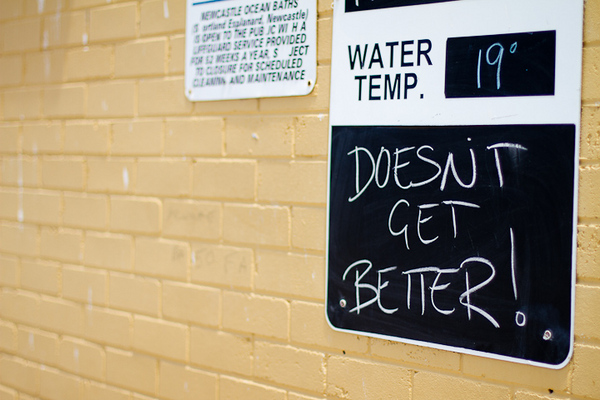 NEWCASTLE OCEAN BATHS
Esplanard, Newcastle)
IS OPEN TO THE PUB IC WI H A
LIFEGUARD SERVICE PROVIDED
FOR 52 WEEKS A YEAR, S JECT
TO CLOSURE FOR SCHEDULED
CLEANING AND MAINTENANCE
WATER
TEMP.
19°
DOESN'T
GET
BETTER!